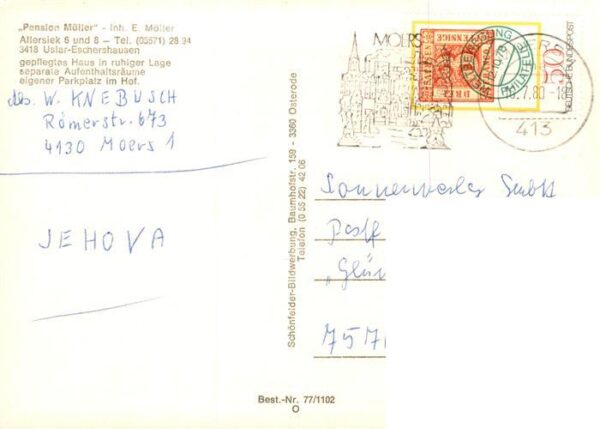 „Pension Müller" - Inh. E. Müller
Allersiek 6 und 8 – Tel. (05571) 28 94
3418 Uslar-Eschershausen
gepflegtes Haus in ruhiger Lage
separate Aufenthaltsräume
eigener Parkplatz im Hof.
Abs. W. KNEBUSCH
Römerstr. 673
4130 Moers 1
JEHOVA
Schönfelder-Bildwerbung, Baumhofstr. 159 - 3360 Osterode
Telefon (0 55 22) 42 06
MOERS
PFENNIGE
DREI
PHILATELIE
50
DEUTSCHE BUNDESPOST
.7.80-18
413
Sonnenverlag GmbH
Postf
„Glü
757
Best.-Nr. 77/1102